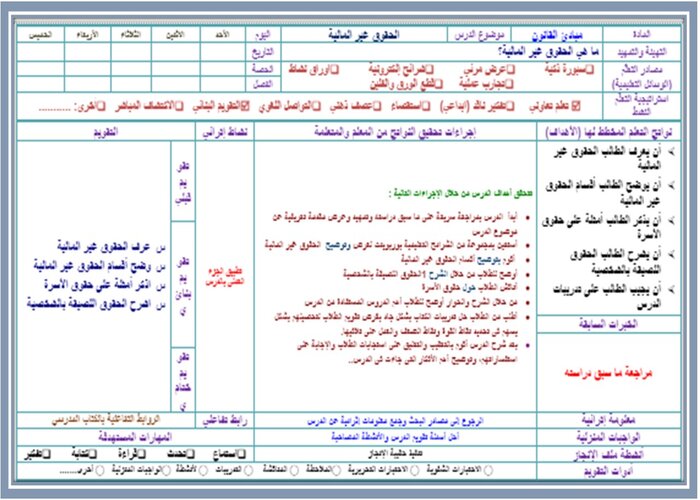 المادة مبادئ القانون موضوع الدرس الحقوق غير المالية اليوم الأحد الاثنين الثلاثاء الأربعاء الخميس
التهيئة والتمهيد ما هي الحقوق غير المالية؟ التاريخ
مصادر التعلم (الوسائل التعليمية) سبورة ذكية عرض مرئي شرائح إلكترونية أوراق نشاط الحصة
تجارب عملية قطع الورق والفلين الفصل
استراتيجية التعلم النشط تعلم تعاوني تفكير ناقد (إبداعي) استقصاء عصف ذهني التواصل اللغوي التقويم البنائي الاكتشاف المباشر أخرى: ...........
نواتج التعلم المخطط لها (الأهداف) إجراءات تحقيق النواتج من المعلم والمتعلمة نشاط إثرائي التقويم
أن يعرف الطالب الحقوق غير المالية
أن يوضح الطالب أقسام الحقوق غير المالية
أن يذكر الطالب أمثلة على حقوق الأسرة
أن يشرح الطالب الحقوق اللصيقة بالشخصية
أن يجيب الطالب على تدريبات الدرس
الخبرات السابقة
مراجعة ما سبق دراسته
تتحقق أهداف الدرس من خلال الإجراءات التالية :
أبدأ الدرس بمراجعة سريعة على ما سبق دراسته وتمهيد وعرض مقدمة تعريفية عن موضوع الدرس
أستعين بمجموعة من الشرائح التعليمية بوربوينت لعرض وتوضيح الحقوق غير المالية
أقوم بتوضيح أقسام الحقوق غير المالية
أوضح للطلاب من خلال الشرح الحقوق اللصيقة بالشخصية
أناقش الطلاب حول حقوق الأسرة
من خلال الشرح والحوار أوضح للطلاب أهم الدروس المستفادة من الدرس
أطلب من الطلاب حل تدريبات الكتاب بشكل جاد بغرض تقويم الطلاب لتحصيلهم بشكل يسهم في تحديد نقاط القوة ونقاط الضعف والعمل على علاجها.
بعد شرح الدرس أقوم بالتعقيب والتعليق على استجابات الطلاب والإجابة على استفساراتهم، وتوضيح أهم الأفكار التي جاءت في الدرس..
تطبيق الجزء العملي بالدرس
تقويم قبلي
تقويم بنائي
تقويم ختامي
س عرف الحقوق غير المالية
س وضح أقسام الحقوق غير المالية
س اذكر أمثلة على حقوق الأسرة
س اشرح الحقوق اللصيقة بالشخصية
معلومة إثرائية الرجوع إلى مصادر البحث وجمع معلومات إثرائية عن الدرس رابط تفاعلي الروابط التفاعلية بالكتاب المدرسي
الواجبات المنزلية أحل أسئلة تقويم الدرس والأنشطة المصاحبة المهارات المستهدفة
أنشطة ملف الإنجاز حقيبة الإنجاز استماع تحدث قراءة كتابة تفكير
أدوات التقويم الاختبارات الشفوية الاختبارات التحريرية الملاحظة المناقشة التدريبات الأنشطة الواجبات المنزلية أخرى.......